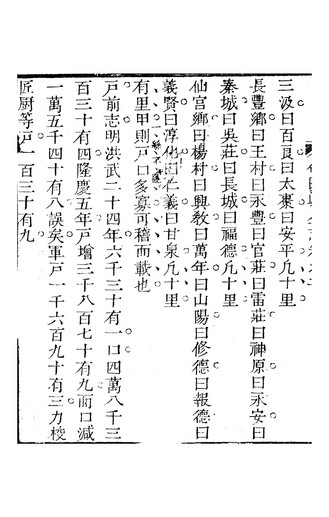 三汲曰百良曰太棗曰安平凢十里
長豐鄉曰王村曰永豐曰官莊曰雷莊曰神原曰永安曰
秦城曰吳莊曰長城曰福德凢十里
仙宮鄉曰楊村曰興教曰萬年曰山陽曰修德曰報德曰
義賢曰淳化曰仁義曰甘泉凢十里
有里甲則戸口多寡可稽而載也
戸前志明洪武二十四年六千三十有一口四萬八千三
百三十有四隆慶五年戸增三千八百七十有九而口減
一萬五千四十有八誤矣軍戸一千六百九十有三力校
匠厨等戸一百三十有九